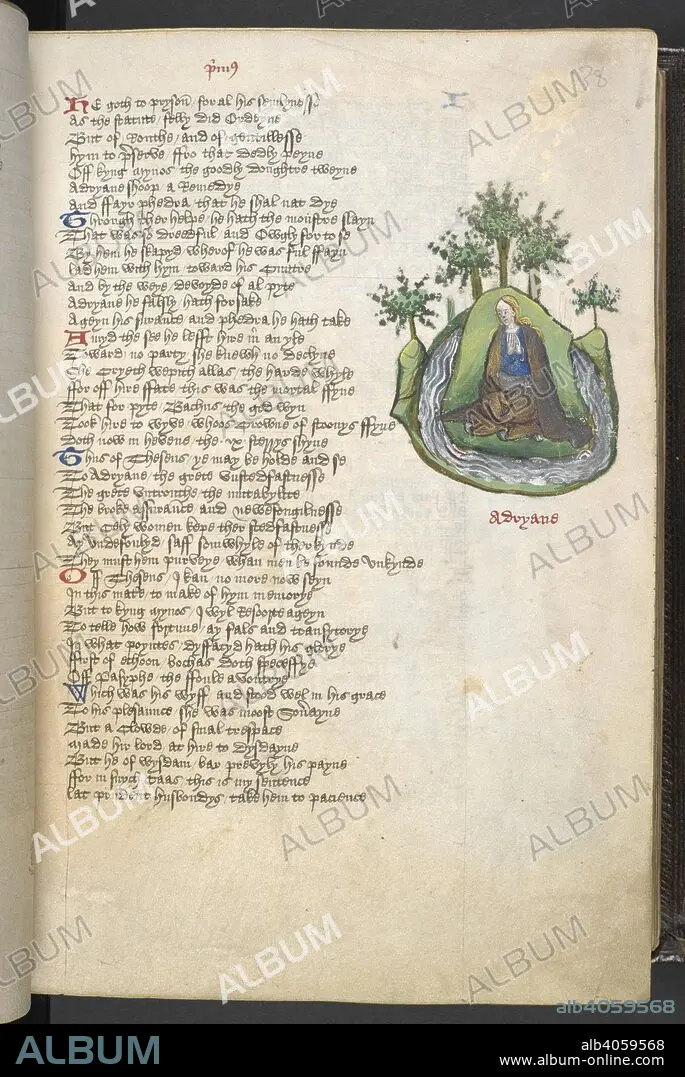 p̄mꝯ
HE goth to pryson for al his
As the statute felly did Ordeyne
But of Routhe and of gentillesse
hym to p̄serve ffro that dedly peyne
Off kyng mynos the goodly doughtre tweyne
Adryane shoop a Remedye
And ffayr phedra that he shal nat dye
Through ther helpe he hath the monstre slayn
That was so dreedful and Owgh for to se
By hem he skapyd wherof he was ful ffayn
lad hem with hym toward his Cuntre
and by the weye devoyde of al pyte
Adryane he falsly hath forsake
Ageyn his surance and phedra he hath take
Amyd the see he lefft hire in an yle
Toward no party she knewh no declyne
She Cryeth wepith allas the harde whyle
ffor off hire ffate this was the mortal ffyne
That for pyte Bachus the god wyn
Took hire to wyve whoos Crowne of stoonys ffyne
doth now in hevene the ix sterrys shyne
Thus of Theseus ye may be holde and se
To Adryane the grete
The grete Untrouthe the mutabylite
The broke assurance and newefongilnesse
But Cely women kepe ther stedfastnesse
Ay undefouyld saff somwhyle of ther kynde
They must hem purveye whan men be founde Unkynde
Off Theseus I kan no more now seyn
In this mateer to make of hym memorye
But to kyng mynos I wyl Resorte ageyn
To telle how fortune ay fals and transytorye
In what poyntes dyffacyd hath his glorye
ffirst of ethoon bochas doth specefye
Off Pasyphe the ffoule avoutrye
Which was his wyff and stood wel in his grace
To his plesaunce she was moost Sov̄ayne
But a Clowde of smal trespace
made hir lord at hire to dysdayne
But he of wysdam bar prevyly his payne
ffor in swych caas this is my sentence
lat prudent husbondys take hem to pacience
Adryane
ALBUM
alb4059568
ALBUM
alb4059568
www.album-online.com